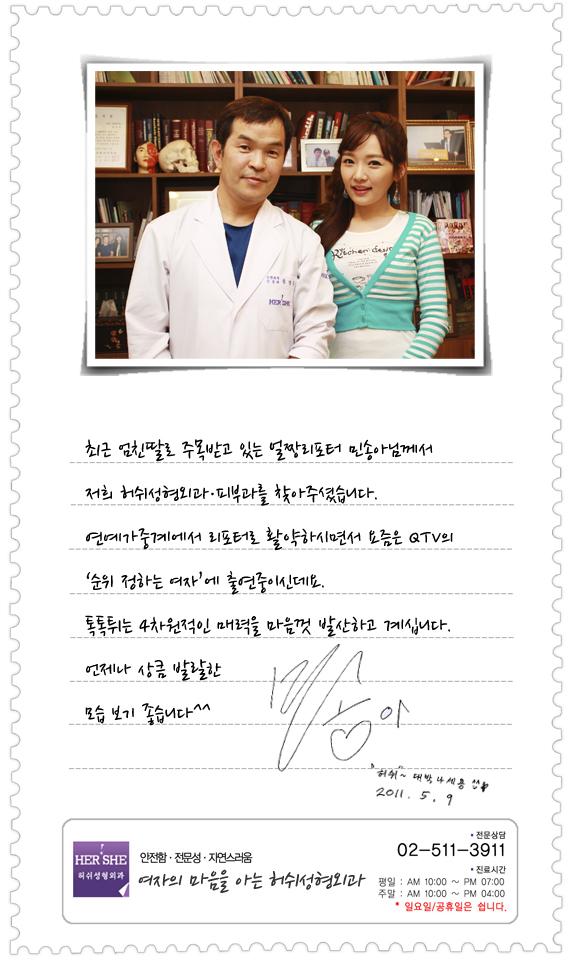 Kitchen design
HER SHE
최근 엄친딸로 주목받고 있는 얼짱리포터 민송아님께서
저희 허쉬성형외과·피부과를 찾아주셨습니다.
연예가중계에서 리포터로 활약하시면서 요즘은 QTV의
'순위 정하는 여자'에 출연중이신데요.
톡톡튀는 4차원적인 매력을 마음껏 발산하고 계십니다.
언제나 상큼 발랄한
모습 보기 좋습니다^^
"허쉬"~ 대박나세용
2011. 5. 9
HER SHE
허쉬성형외과
안전함 · 전문성 · 자연스러움
여자의 마음을 아는 허쉬성형외과
전문상담
02-511-3911
진료시간
평일 : AM 10:00 ~ PM 07:00
주말 : AM 10:00 ~ PM 04:00
* 일요일/공휴일은 쉽니다.